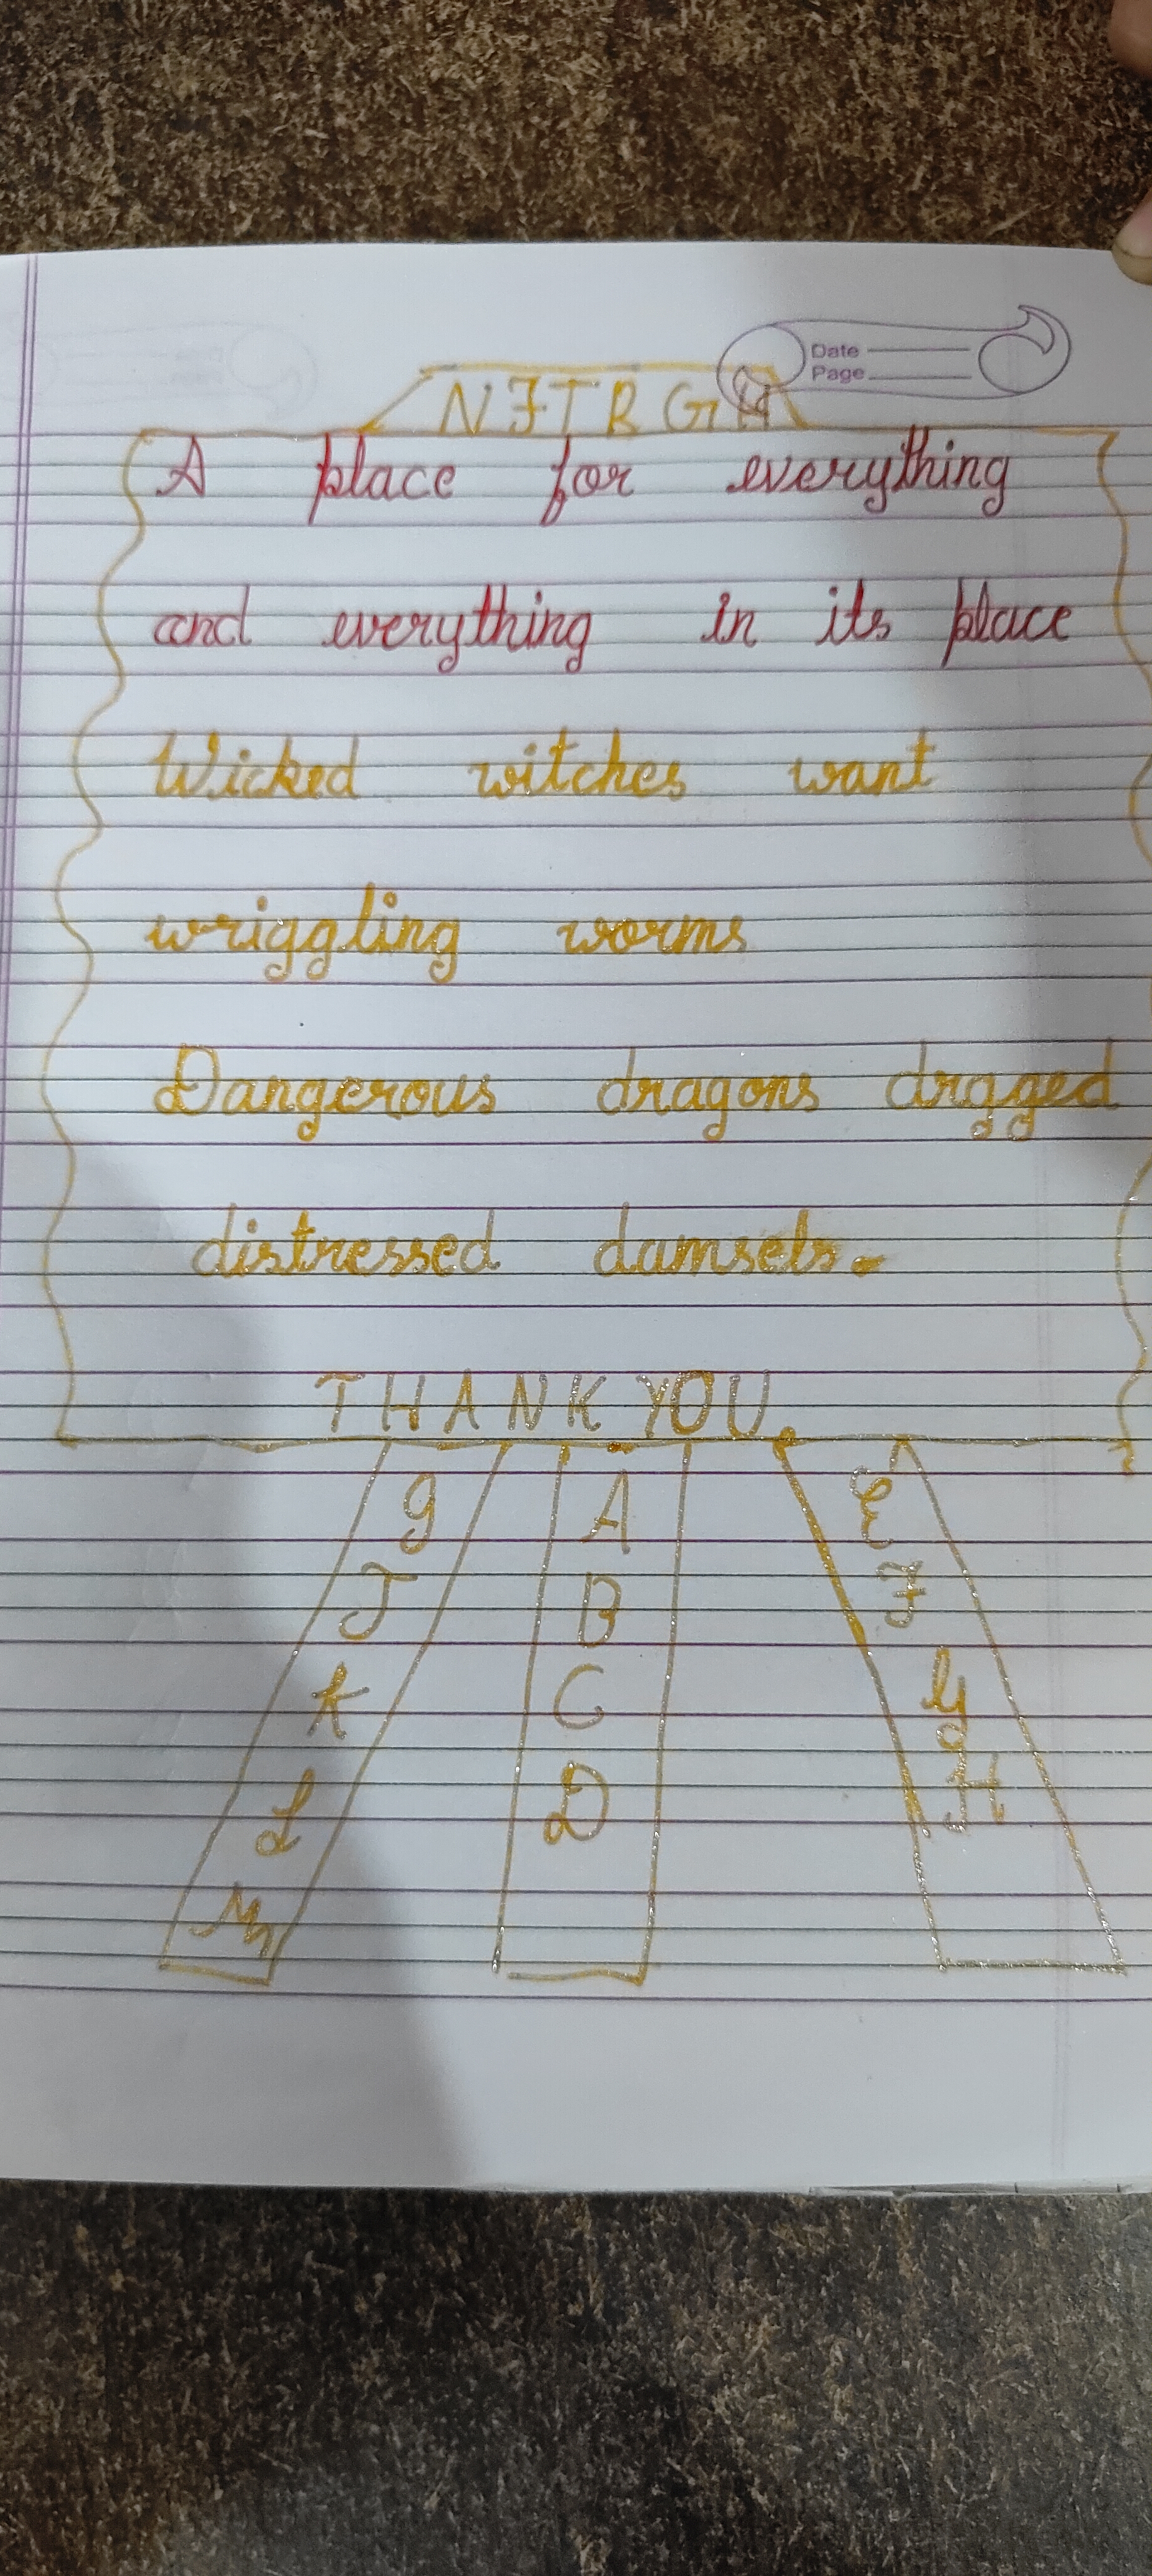 Date
Page
N F T R G H
A place for everything
and everything in its place
Wicked witches want
wriggling worms
Dangerous dragons dragged
distressed damsels.
THANK YOU.
I A E
J B F
K C G
L D H
M